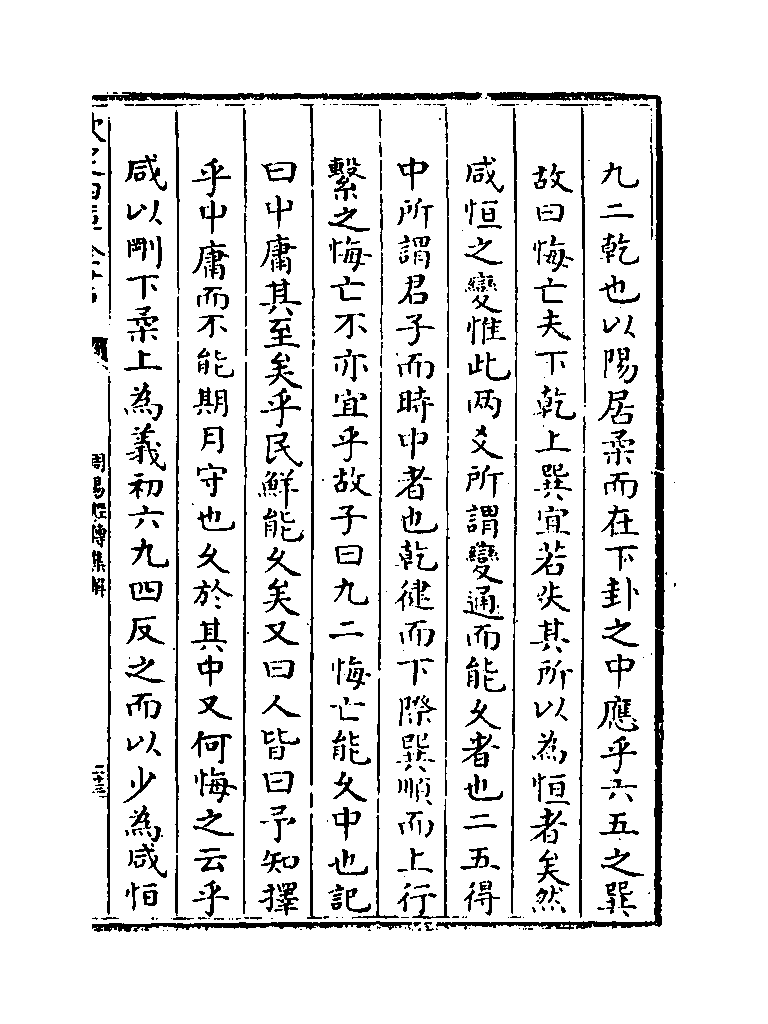 九二乾也以陽居柔而在下卦之中應乎六五之巽
故曰悔亡夫下乾上巽宜若失其所以為恒者矣然
咸恒之變惟此兩爻所謂變通而能久者也二五得
中所謂君子而時中者也乾健而下際巽順而上行
繫之悔亡不亦宜乎故子曰九二悔亡能久中也記
曰中庸其至矣乎民鮮能久矣又曰人皆曰予知擇
乎中庸而不能期月守也久於其中又何悔之云乎
咸以剛下柔上為義初六九四反之而以少為咸恒
周易經傳集解